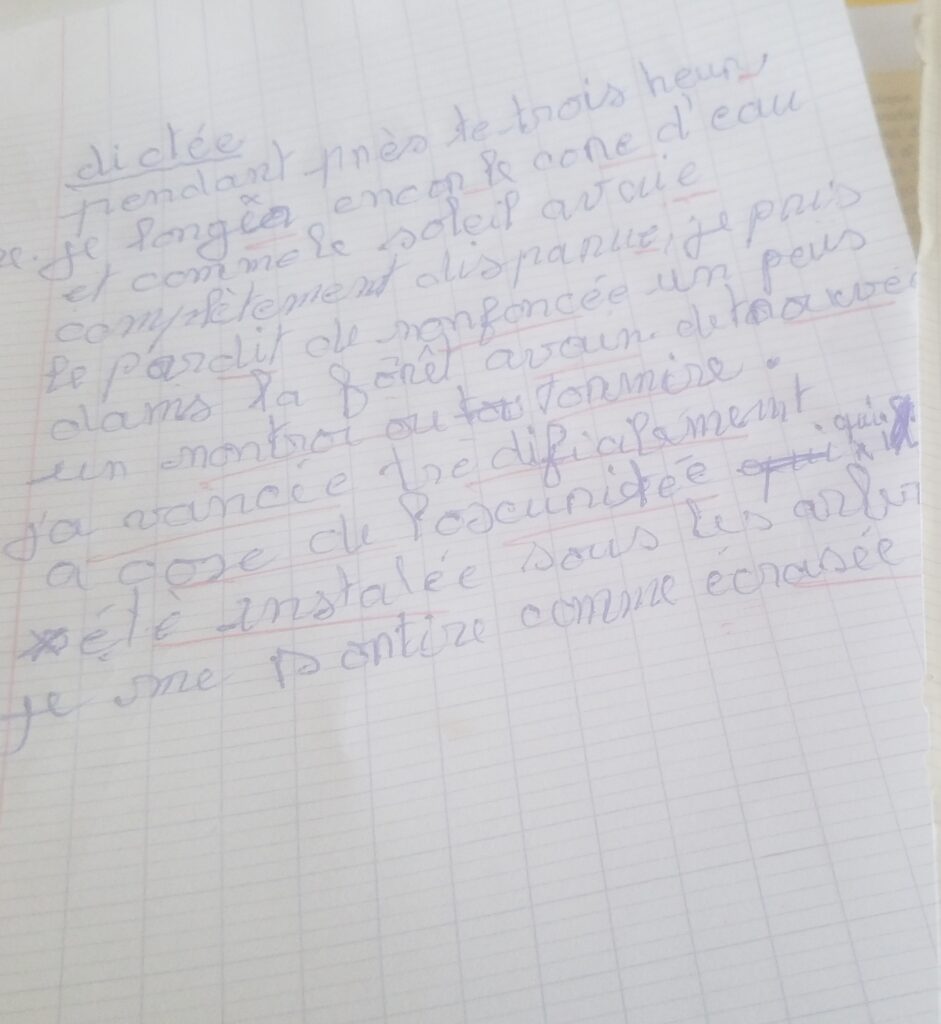 dictée
pendant près te trois heurs
je longèr encor le cone d'eau
et comme le soleil avaie
complètement disparue, je pris
le pardit de renfoncée un peus
dams la forêt avain. detrouvé
un montroi ou tommire.
j'a vancée tre dificialament
a cose de l'oscuritée qui
été instalée sous les arbr
je me sontire comme écrasée